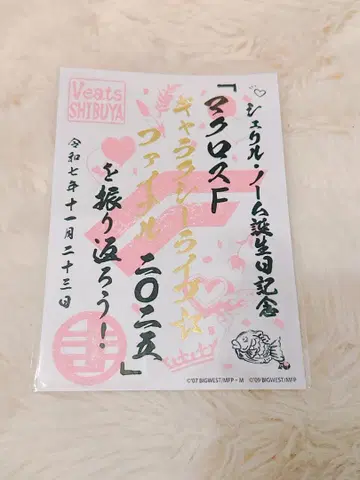 Veats
SHIBUYA
シェリル・ノーム誕生日記念
「マクロスF
ギャラクシーライブ☆
ファイナル 二〇二五」
を振り返ろう！
令和七年十一月二十三日
©'07 BIGWEST/MFP・M ©'09 BIGWEST/MFP